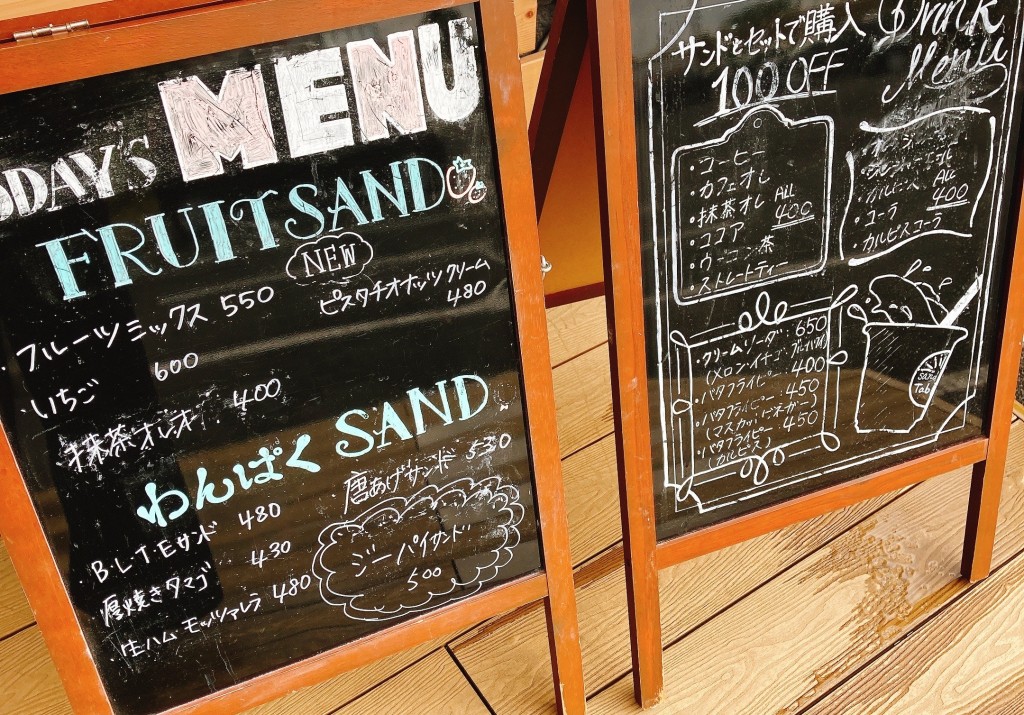 ODAY'S MENU
FRUIT SAND
NEW
・フルーツミックス 550
ピスタチオナッツクリーム
480
・いちご 600
・抹茶オレオ 400
わんぱく SAND
・B.L.T.Eサンド 480
・厚焼きタマゴ 430
・生ハムモッツァレラ 480
・唐あげサンド 530
ジーパイサンド
500
サンドとセットで購入
100 OFF
Drink
Menu
・コーヒー
・カフェオレ
・抹茶オレ
・ココア
・ウーロン茶
・ストレートティー
ALL
400
・ジンジャーエール
・カルピス
・コーラ
・カルピスコーラ
ALL
400
・クリームソーダ : 650
(メロン・イチゴ・ブルーハワイ)
・バタフライピー : 400
・バタフライピー : 450
(マスカットビネガー)
・バタフライピー : 450
(カルピス)